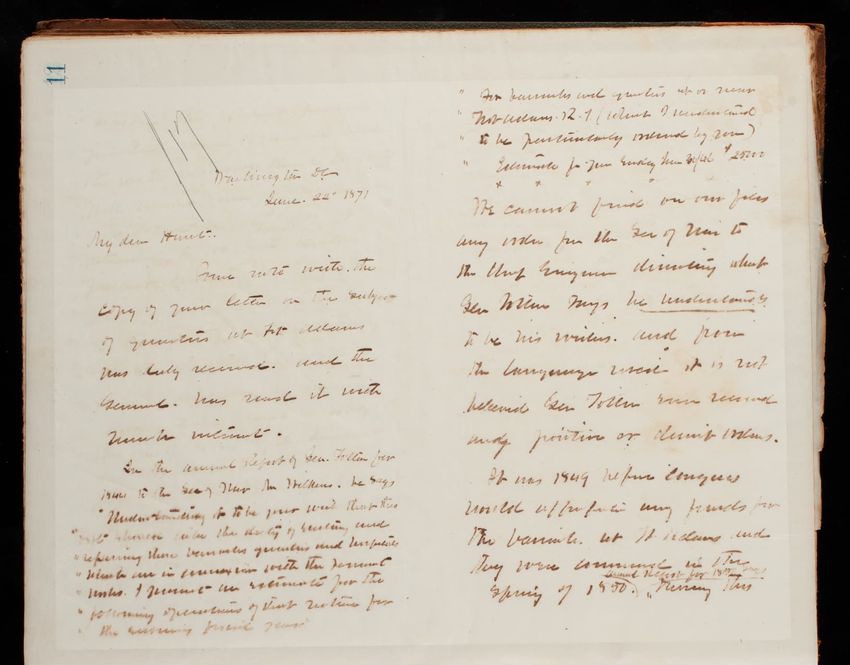 11
Washington DC
June 22d 1871
My dear Hunt.
Your note with the
copy of your letter on the subject
of quarters at Ft Adams
was duly received. and the
General. has read it with
much interest.
In the annual Report of Gen. Totten for
1844 to the Sec of War Mr Wilkins. he says
"Understanding it to be your wish that this
" Dept should take the duty of erecting and
" repairing those barracks quarters and hospitals
" which are in connexion with the permanent
" works. I present an estimate for the
" operations of that nature for
" the ensuing fiscal year.
" For barracks and quarters at or near
" Fort Adams. R.I (which I understand
" to be particularly ordered by you)
" Estimate for year ending June
We cannot find on our files
any order from the Sec of War to
the Chief Engineer directing what
Gen Totten says he understands
to be his wishes. and from
the language used it is not
believed Gen Totten ever received
any positive or direct orders.
It was 1849 before Congress
would appropriate any funds for
the barracks. at Ft Adams and
they were commenced in the
Annual Report for 1850 says
Spring of 1850. "During this